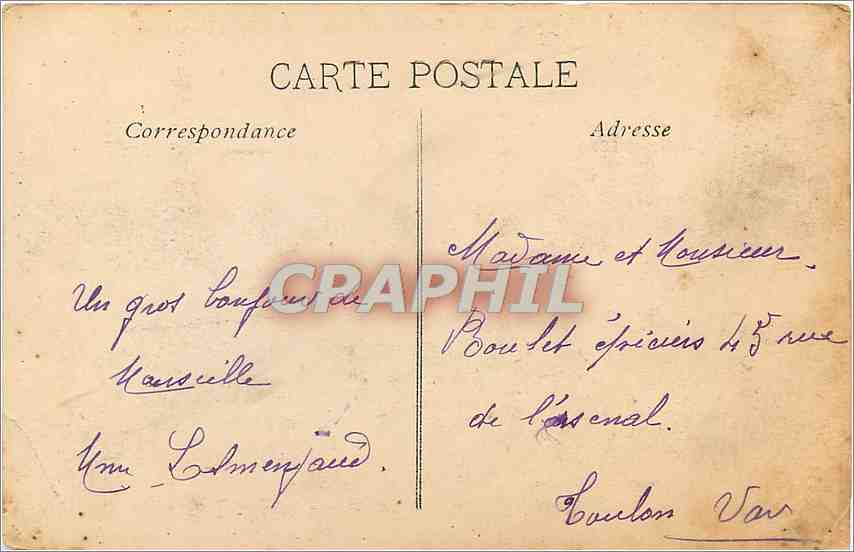 CARTE POSTALE
Correspondance
Adresse
Un gros bonjour de
Marseille
Madame et Monsieur
Roulet épiciers 45 rue
de l'arsenal.
Toulon Var
CPRAPHIL